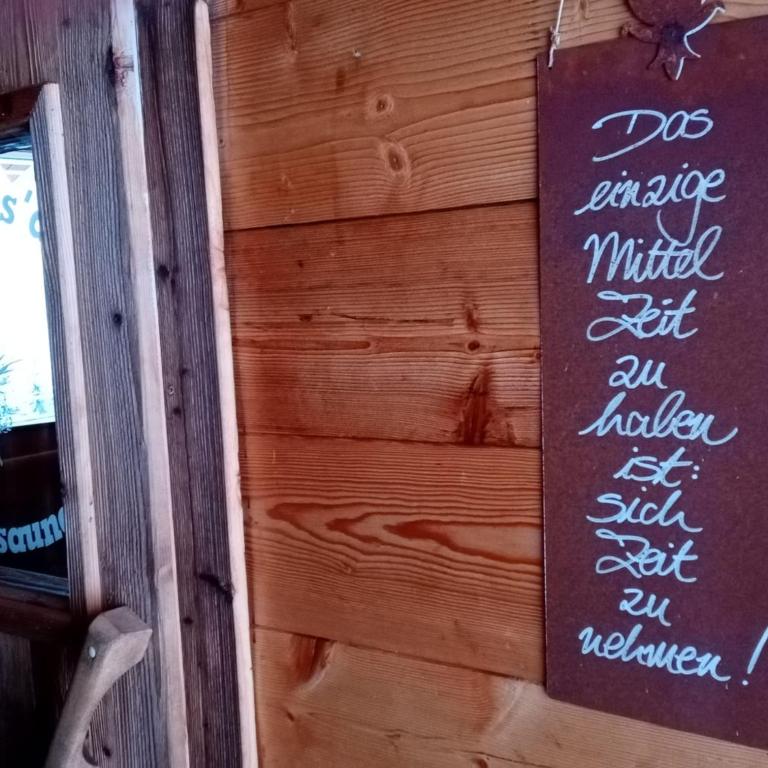 Das
einzige
Mittel
Zeit
zu
haben
ist:
sich
Zeit
zu
nehmen!